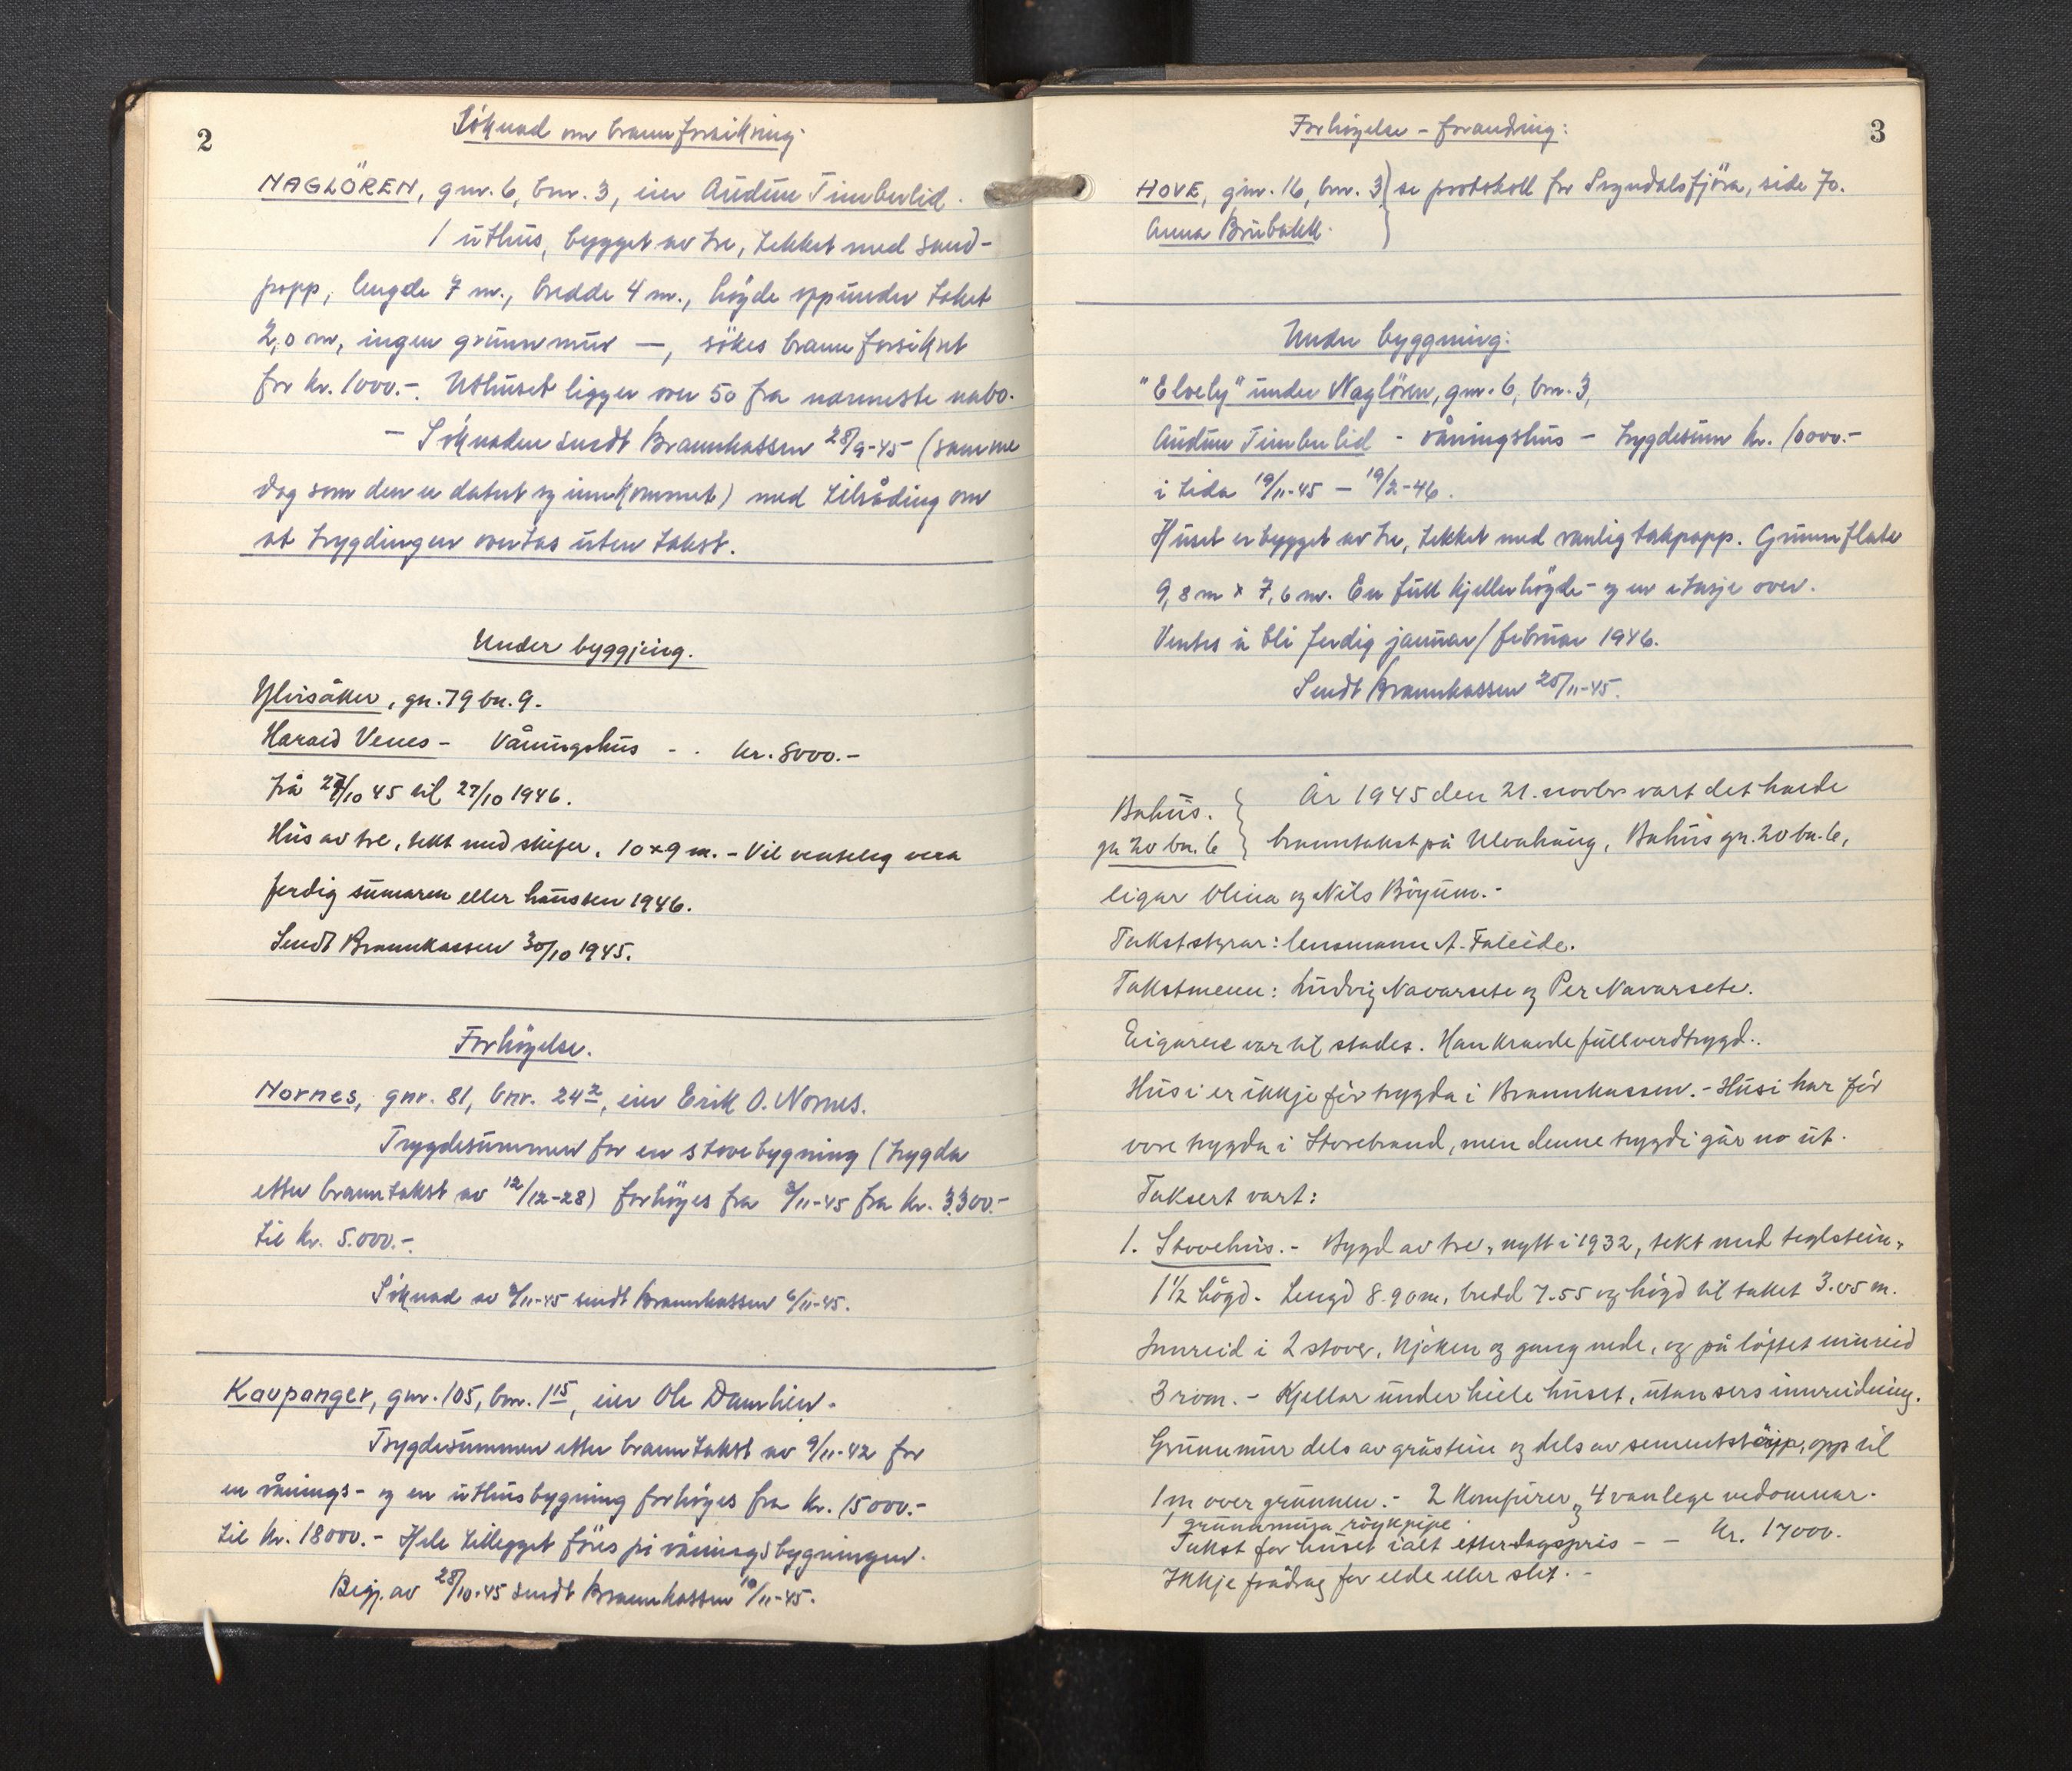 2
Söknad om brannforsikring:
NAGLÖREN, gnr. 6, bnr. 3, eier Audun Timberlid.
1 uthus, bygget av tre, tekket med sand-
papp, lengde 7 m., bredde 4 m., höyde oppunder taket
2,0 m, ingen grunnmur —, sökes brannforsikret
for kr. 1000.-. Uthuset ligger over 50 fra nærmeste nabo.
- Söknaden sendt Brannkassen 28/9-45 (samme
dag som den er datert og innkommet) med tilråding om
at trygdingen overtas uten takst.
Under byggjing.
Ylvisåker, gn. 79 bn. 9.
Harald Venes - Våningshus - . kr. 8000.-
frå 27/10 45 til 27/10 1946.
Hus av tre, tekt med skifer, 10 x 9 m. - Vil venteleg vera
ferdig sumaren eller hausten 1946.
Sendt Brannkassen 30/10 1945.
Forhöyelse.
Nornes, gnr. 81, bnr. 24², eier Erik O. Nornes.
Trygdesummen for en stovebygning (trygda
etter branntakst av 12/12-28) forhöyes fra 2/11-45 fra kr. 3.300.-
til kr. 5.000.-.
Söknad av 2/11-45 sendt Brannkassen 6/11-45.
Kaupanger, gnr. 105, bnr. 1¹⁵, eier Ole Damhien.
Trygdesummen etter branntakst av 9/11-42 for
en vånings- og en uthusbygning forhöyes fra kr. 15000.-
til kr. 18000.- Hele tillegget föres på våningsbygningen.
Begj. av 28/10-45 sendt Brannkassen 10/11-45.
3
Forhöyelse - forandring:
HOVE, gnr. 16, bnr. 3 } se protokoll for Sogndalsfjöra, side 70.
Anna Brubakk.
Under byggning:
"Elvely" under Naglören, gnr. 6, bnr. 3,
Audun Timberlid - våningshus - trygdesum kr. 10000.-
i tida 19/11-45 - 19/2-46.
Huset er bygget av tre, tekket med vanlig takpapp. Grunnflate
9,8 m x 7,6 m. En full kjellerhöyde - og en etasje over.
Ventes å bli ferdig januar/februar 1946.
Sendt Brannkassen 25/11-45.
Bahus. } År 1945 den 21. novbr vart det halde
gn 20 bn. 6 } branntakst på Ulvahaug, Bahus gn. 20 bn. 6,
eigar Olina og Nils Böyum.-
Takststyrar: lensmann A. Faleide.
Takstmenn: Ludvig Navarsete og Per Navarsete.
Eigaren var til stades. Han kravde fullverdtrygd..
Husi er ikkje för trygda i Brannkassen. - Husi har för
vore trygda i Storebrand, men denne trygdi går no ut.
Taksert vart:
1. Stovehus. - Bygd av tre, nytt i 1932, tekt med teglstein,
1 1/2 högd. Lengd 8.90 m, bredd 7.55 og högd til taket 3.05 m.
Innreid i 2 stover, kjöken og gang nede, og på loftet innreid
3 rom. - Kjellar under heile huset, utan sers innreidning.
Grunnmur dels av gråstein og dels av sementstöyp, opp til
1 m over grunnen. - 2 komfurer og 4 vanlege vedomnar.
1 grunnmura röykpipe.
Takst for huset i alt etter dagspris - - kr. 17000.
Ikkje frådrag for elde eller slit. -